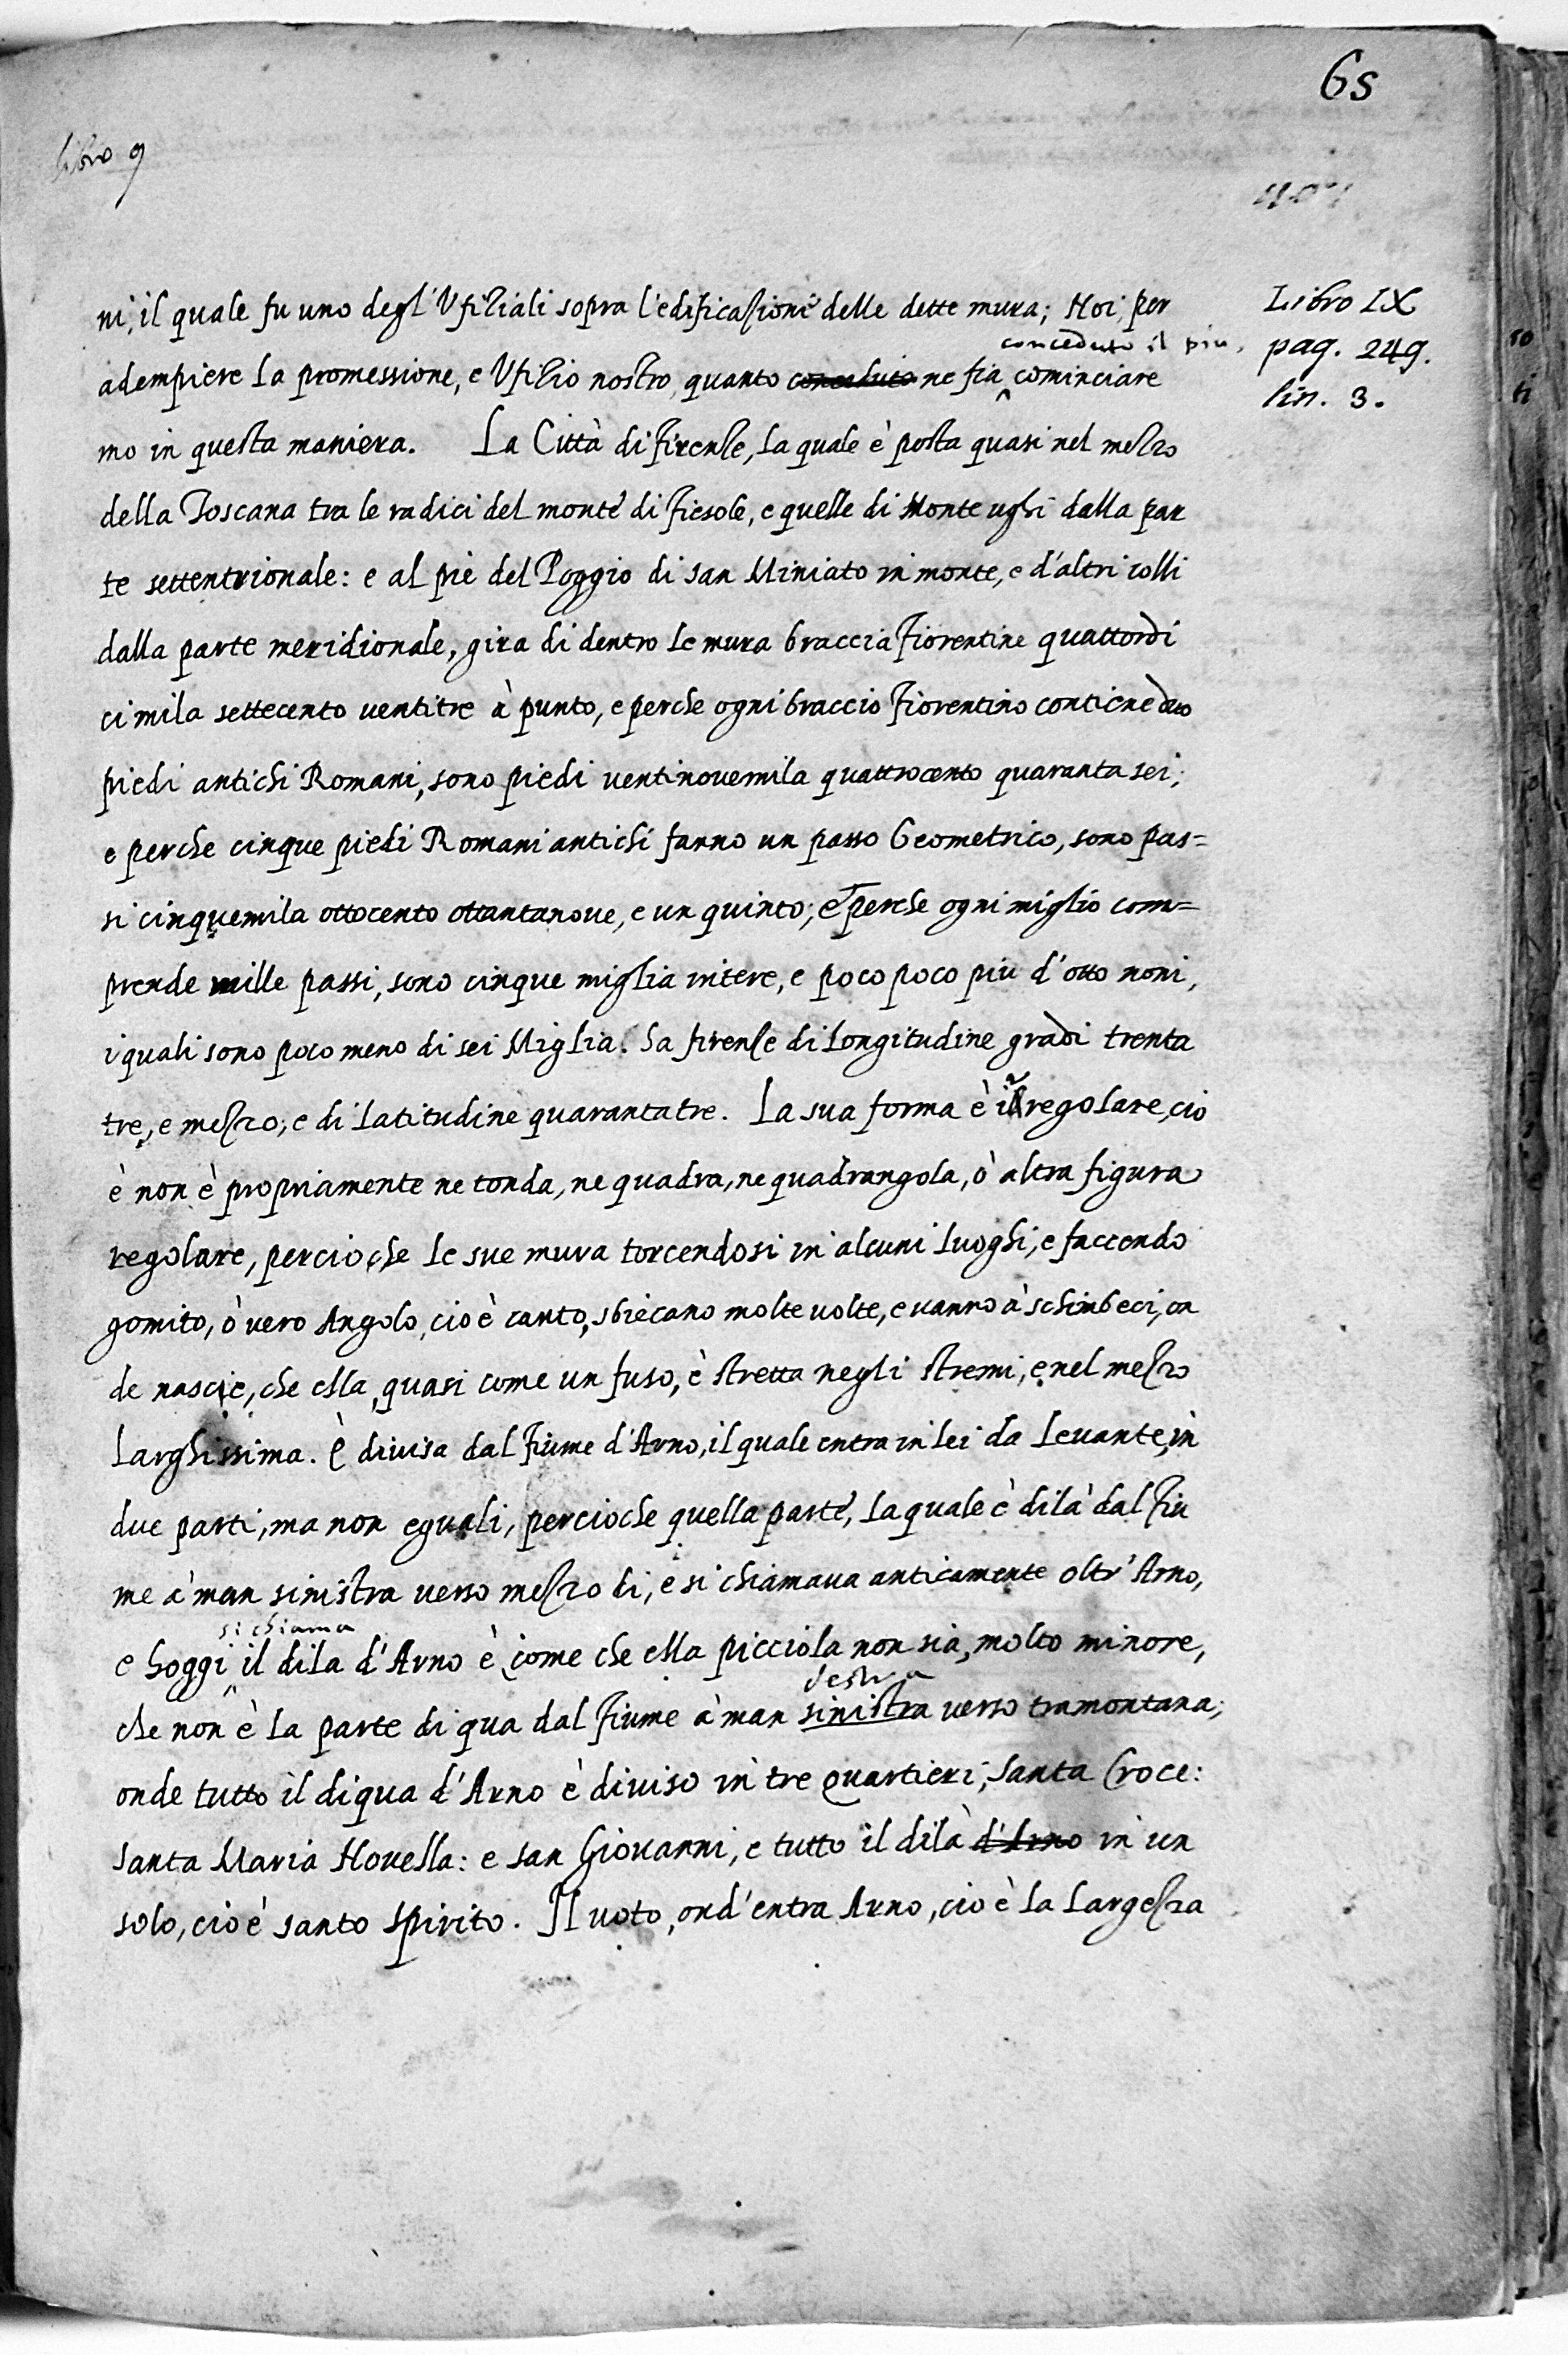 65
libro 9
ni, il quale fu uno degl'Ufiziali sopra l'edificazione delle dette mura; Noi, per
Libro IX
conceduto il piu,
pag. 249.
adempiere la promessione, e Ufizio nostro, quanto conceduto ne fia cominciare
lin. 3.
mo in questa maniera. La Città di Firenze, la quale è posta quasi nel mezzo
della Toscana tra le radici del monte di Fiesole, e quelle di Monte ughi dalla par
te settentrionale: e al piè del Poggio di san Miniato in monte, e d'altri colli
dalla parte meridionale, gira di dentro le mura braccia Fiorentine quattordi
ci mila settecento ventitre à punto, e perche ogni braccio Fiorentino contiene duo
piedi antichi Romani, sono piedi ventinovemila quattrocento quaranta sei;
e perche cinque piedi Romani antichi fanno un passo Geometrico, sono pas=
si cinquemila ottocento ottantanove, e un quinto; e perche ogni miglio com=
prende mille passi, sono cinque miglia intere, e poco poco piu d'otto noni,
i quali sono poco meno di sei Miglia. ha firenze di longitudine gradi trenta
tre, e mezzo; e di latitudine quarantatre. La sua forma è irregolare, cio
è non è propriamente ne tonda, ne quadra, ne quadrangola, ò altra figura
regolare, percioche le sue mura torcendosi in alcuni luoghi, e faccendo
gomito, ò vero Angolo, cio è canto, sbiecano molte volte, e vanno à schimbeci, on
de nascie, che ella, quasi come un fuso, è stretta negli stremi, e nel mezzo
larghissima. È divisa dal Fiume d'Arno, il quale entra in lei da Levante, in
due parti, ma non eguali, percioche quella parte, la quale è di là dal Fiu
me à man sinistra verso mezzo di, e si chiamava anticamente oltr'Arno,
si chiama
e hoggi il dila d'Arno è, come che ella picciola non sia, molto minore,
destra
che non è la parte di qua dal Fiume à man sinistra verso tramontana;
onde tutto il diqua d'Arno è diviso in tre Quartieri; Santa Croce:
santa Maria Novella: e san Giovanni, e tutto il dilà d'Arno in un
solo, cio è santo Spirito. Il voto, ond'entra Arno, cio è la largezza